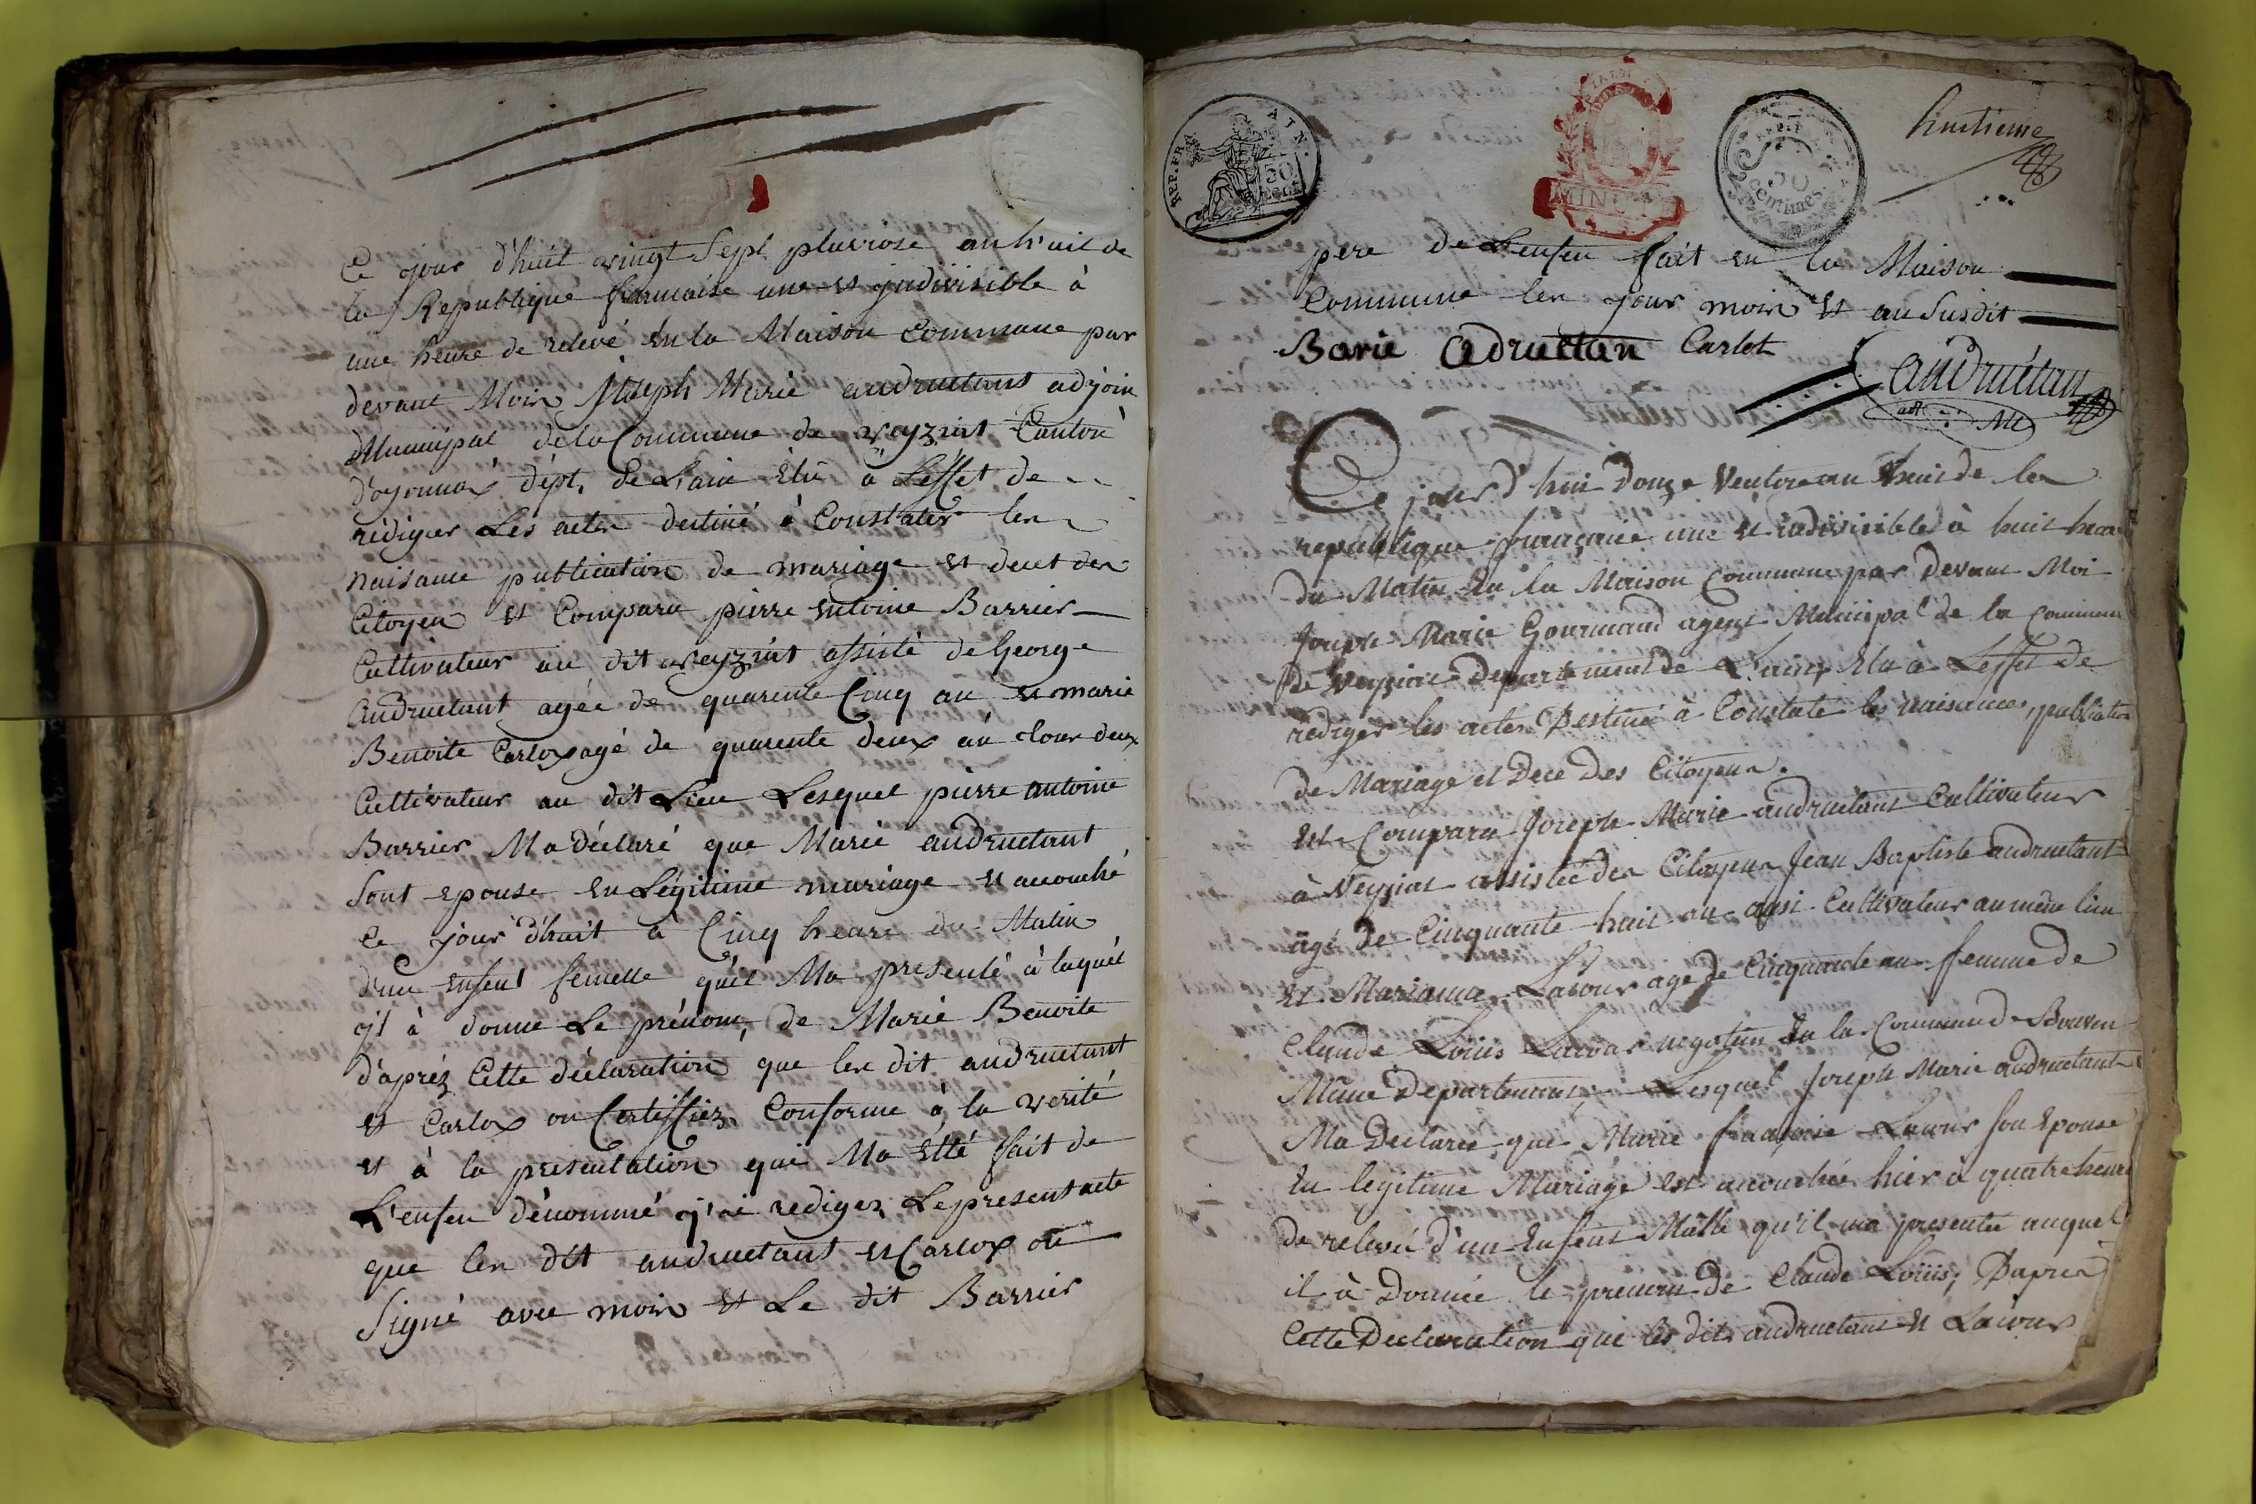 Ce jour d'huit vingt Sept pluviose an h'uit de
la Republique francaise une et jndivisible à
une heure de relevé En la Maison Commune par
devant Moin Joseph Marie audructant adjoin
Municipal de la Commune de veyziat Canton
d'oyonnax dépt. de L'ain Elû à L'effet de
rédiger Les acten destiné à Constater len
naisance publication de mariage et decet den
Citoyen Et Comparu pierre entoine Barrier
Cultivateur au dit veyziat assisté de George
audructant agée de quarente Cinq an et marie
Benoite Carlox agé de quarente deux an tour deux
Cultivateur au dit Lieu Lesquel pierre antoine
Barrier Ma déclaré que Marie audructant
Sont epouse En Légitime mariage et accouché
Ce jour d'huit à Cinq heure du Matin
d'une enfent femelle qu'il Ma presenté à laquél
q'il à donne Le prénom, de Marie Benoite
d'aprés Cette déclaration que len dit audructant
et Carlox on Certiffiez Conforme à la verité
et à la presentation qui Ma Etté fait de
L'enfen dénommé j'ai rediger Le present acte
que len dit audructant et Carlox on
Signé avec moin et Le dit Barrier
REP. FRA. AIN.
50
MINUTE
50
Centimes
huitieme
pere de L'enfen fait en la Maison
Commune len jour moin et an Susdit
Barie adructan Carlot
audructan
adt. Mel
Ce jour d'hui douze Ventose an huit de la
republique française une et indivisible à huit heure
du Matin En la Maison Commune par devant Moi
Joseph Marie Gourmand agent Municipal de la Commune
de Veyziat departement de L'ain, Elu à L'effet de
rediger les acten Destiné à Constate les naisances, publication
de Mariage et Dece Des Citoyen.
Et Comparu Joseph Marie audructant Cultivateur
à Veyziat assistée den Citoyen Jean Baptiste audructant
âgé de Cinquante huit an ausi Cultivateur au même lieu
Et Marianne Lacour age de Cinquante an femme de
Claude Loüis Lacour negotien En la Commune de Bouven
Même Departement, Lesquel Joseph Marie audructant
Ma Declaree que Marie française Lacour son Epouse
En legitime Mariage est accouchée hier à quatre heure
de relevée d'un Enfent Mâlle qu'il ma presentée auquel
il à Donnée le prenom de Claude Loüis, Daprer
Cette Declaration que les dits audructant et Lacour